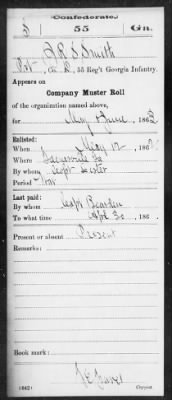 (Confederate.)
S 55 Ga.
S. Smith
Pvt, Co. , 55 Reg't Georgia Infantry.
Appears on
Company Muster Roll
of the organization named above,
for May & June, 186
Enlisted:
When May 12, 186
Where Ga
By whom Capt. Lester
Period War
Last paid:
By whom Capt Bearden
To what time Apl 30, 186
Present or absent Present
Remarks:
Book mark:
J E
(642) Copyist.